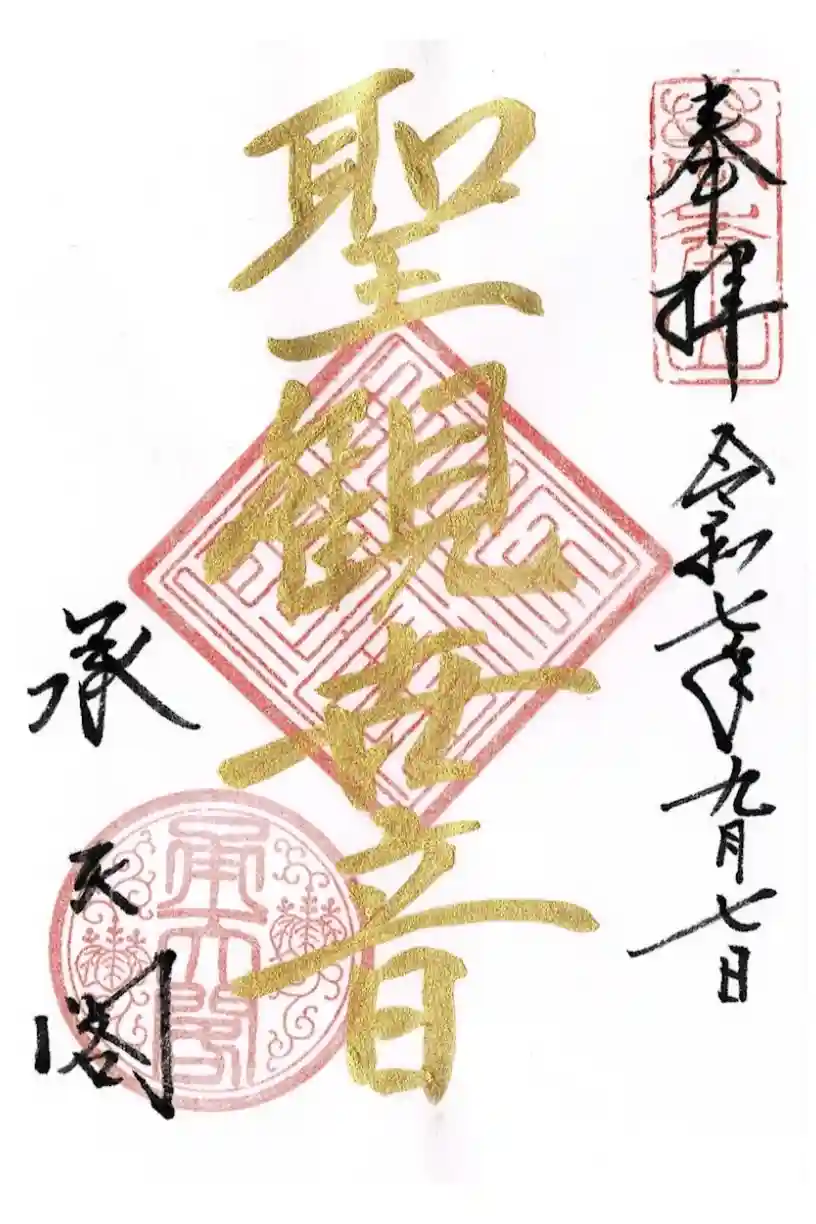 奉拝
令和七年九月七日
聖観世音
承天閣
承天閣